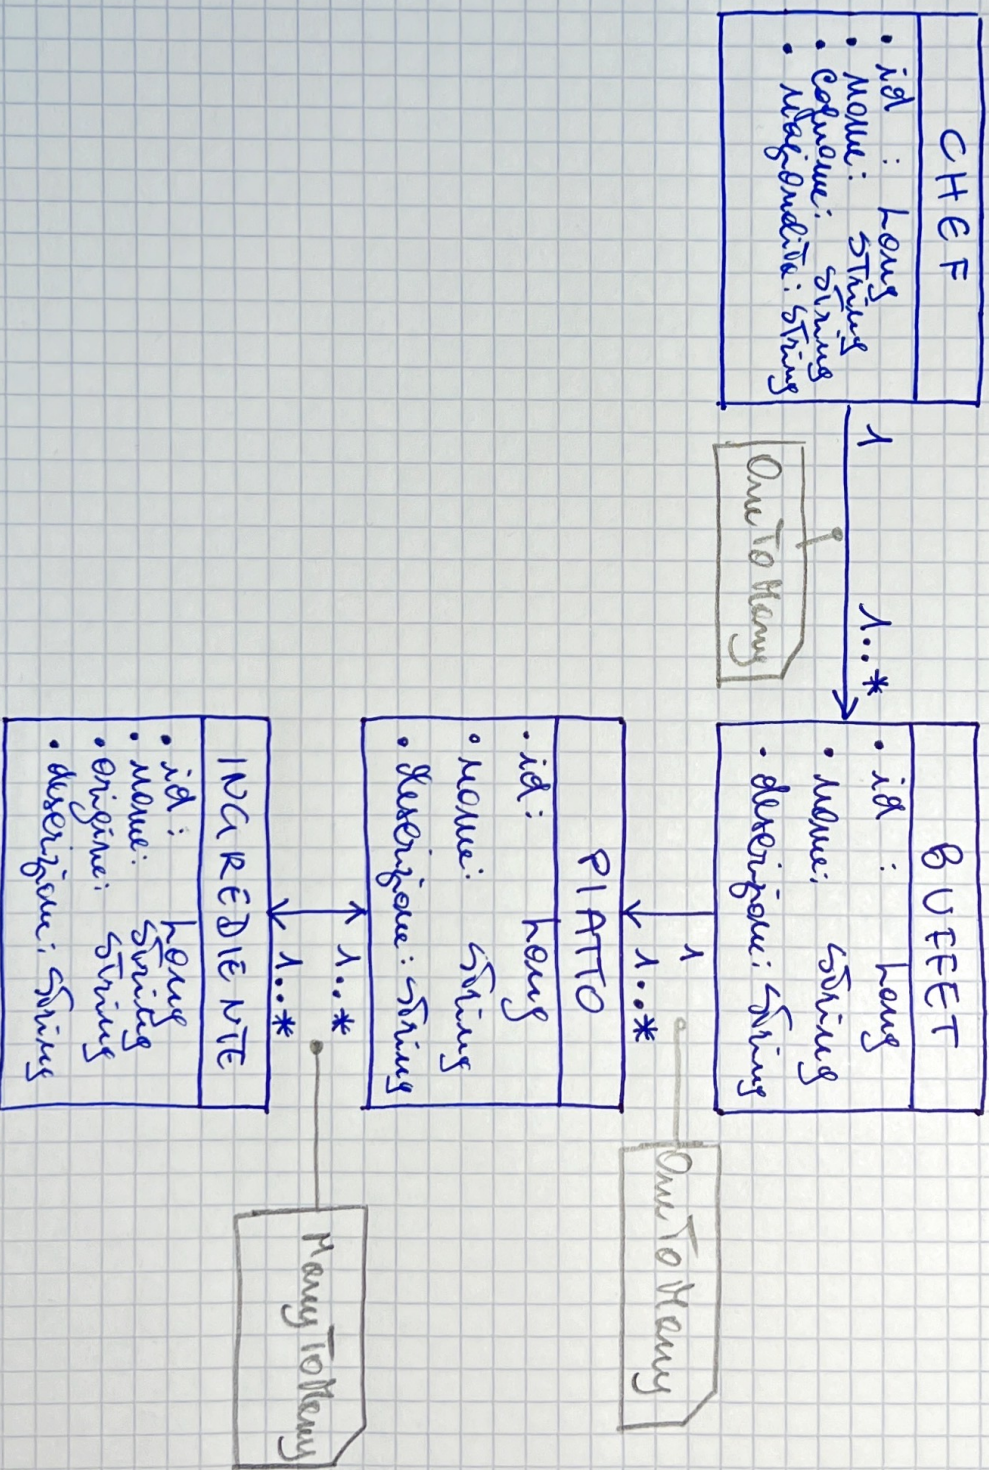 CHEF
• id : Long
• nome: String
• cognome: String
• nazionalità: String
1
1..*
OneToMany
BUFFET
• id : Long
• nome: String
• descrizione: String
1
1..*
OneToMany
PIATTO
• id: Long
• nome: String
• descrizione: String
1..*
1..*
ManyToMany
INGREDIENTE
• id: Long
• nome: String
• origine: String
• descrizione: String